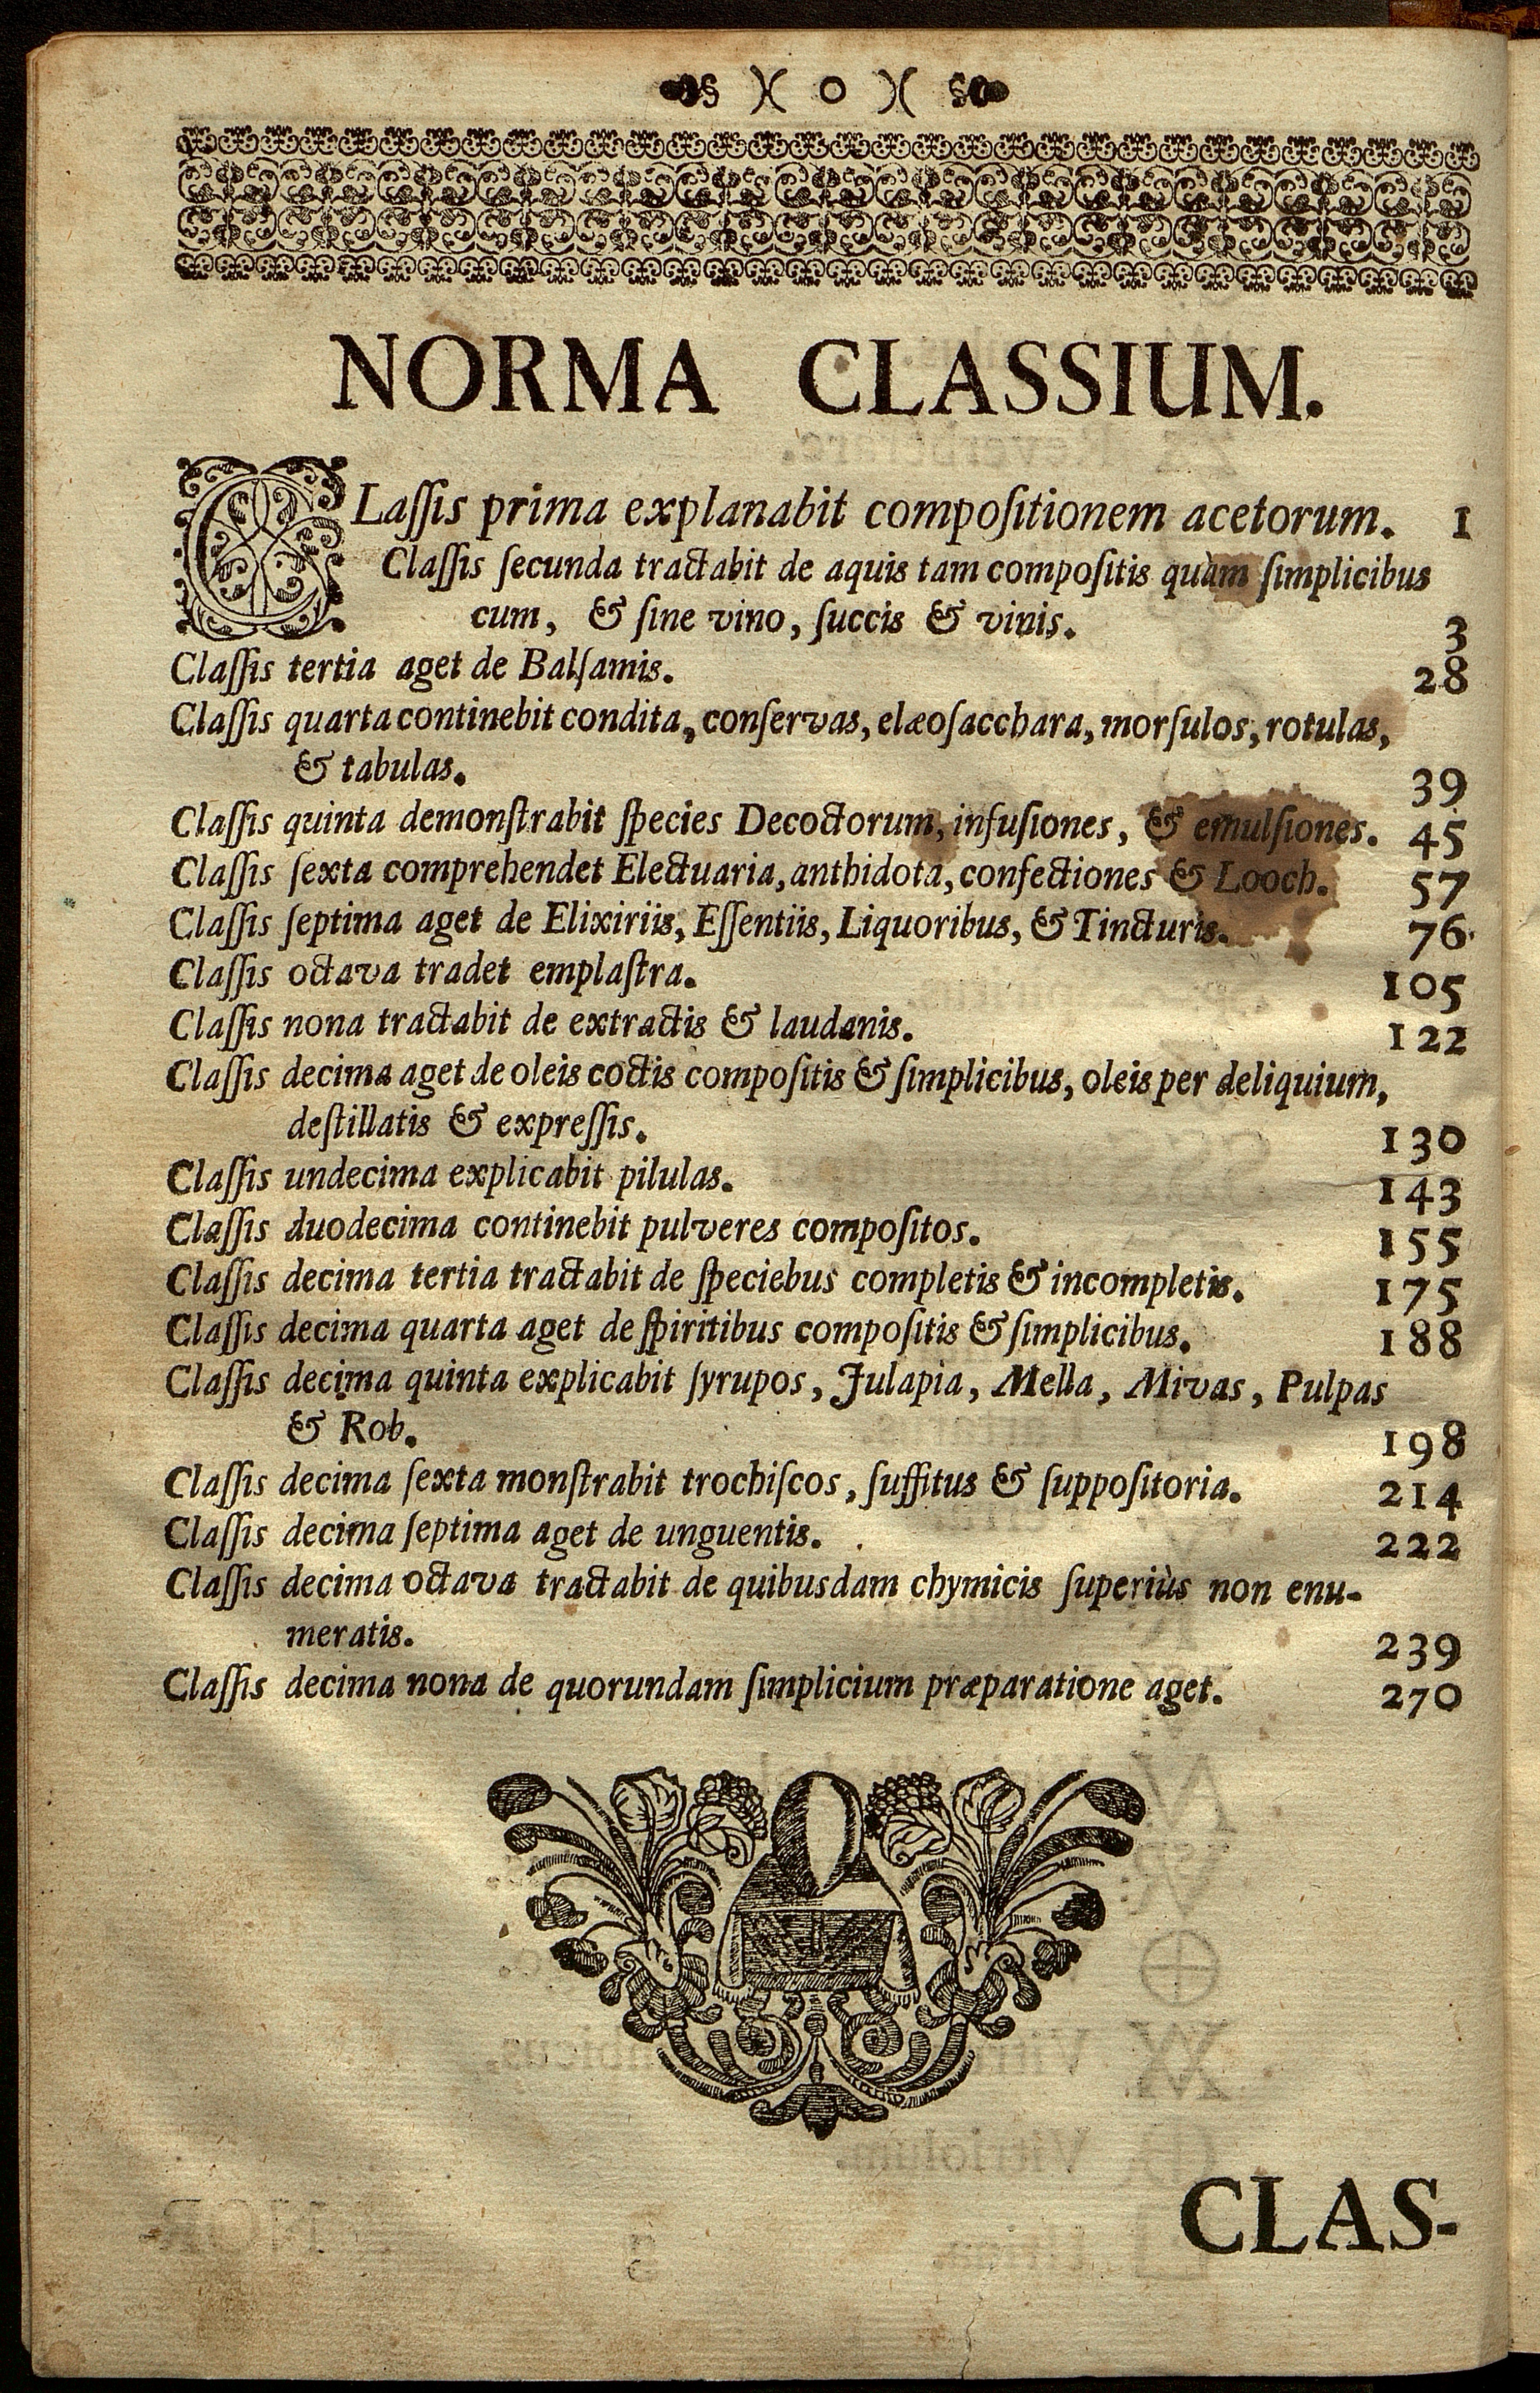 )( o )(
NORMA CLASSIUM.
CLaſſis prima explanabit compoſitionem acetorum. 1
Claſſis ſecunda tractabit de aquis tam compoſitis quàm ſimplicibus
cum, & ſine vino, ſuccis & vinis. 3
Claſſis tertia aget de Balſamis. 28
Claſſis quarta continebit condita, conſervas, elæoſacchara, morſulos, rotulas,
& tabulas. 39
Claſſis quinta demonſtrabit ſpecies Decoctorum, infuſiones, & emulſiones. 45
Claſſis ſexta comprehendet Electuaria, anthidota, confectiones & Looch. 57
Claſſis ſeptima aget de Elixiriis, Eſſentiis, Liquoribus, & Tincturis. 76
Claſſis octava tradet emplaſtra. 105
Claſſis nona tractabit de extractis & laudanis. 122
Claſſis decima aget de oleis coctis compoſitis & ſimplicibus, oleis per deliquium,
deſtillatis & expreſſis. 130
Claſſis undecima explicabit pilulas. 143
Claſſis duodecima continebit pulveres compoſitos. 155
Claſſis decima tertia tractabit de ſpeciebus completis & incompletis. 175
Claſſis decima quarta aget de ſpiritibus compoſitis & ſimplicibus. 188
Claſſis decima quinta explicabit ſyrupos, Julapia, Mella, Mivas, Pulpas
& Rob. 198
Claſſis decima ſexta monſtrabit trochiſcos, ſuffitus & ſuppoſitoria. 214
Claſſis decima ſeptima aget de unguentis. 222
Claſſis decima octava tractabit de quibusdam chymicis ſuperiùs non enu-
meratis. 239
Claſſis decima nona de quorundam ſimplicium præparatione aget. 270
CLAS-